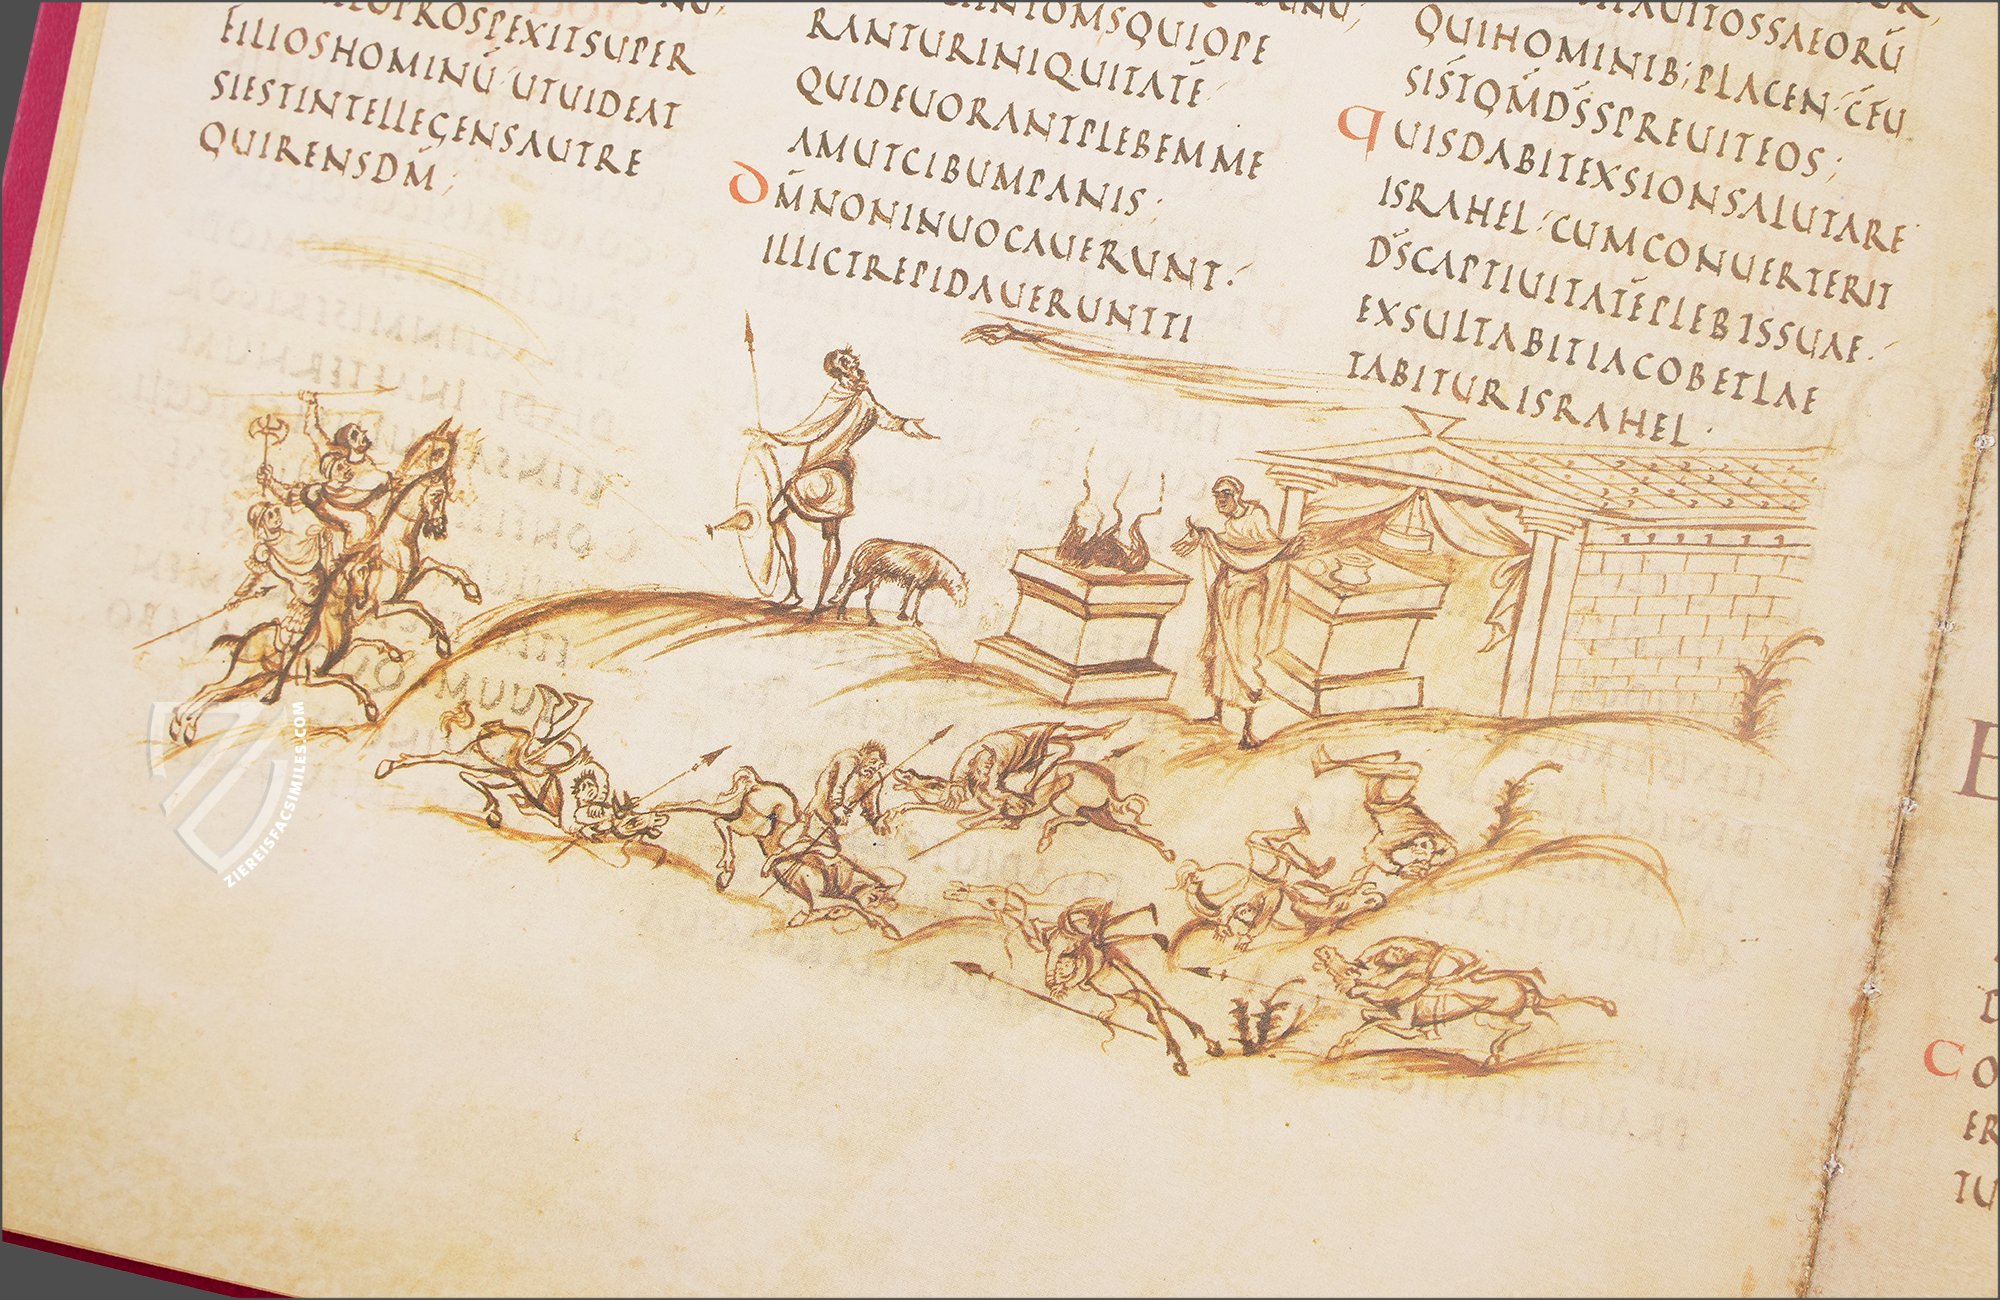 PROSPEXITSUPER
FILIOSHOMINŪ UTUIDEAT
SIESTINTELLEGENSAUTRE
QUIRENSDM̄;
OMSQUIOPE
RANTURINIQUITATĒ
QUIDEUORANTPLEBEMME
AMUTCIBUMPANIS;
DM̄NONINUOCAUERUNT·
ILLICTREPIDAUERUNTTI
QUIHOMINIB;PLACEN·CŌFU
SISTQM̄DS̄SPREUITEOS;
QUISDABITEXSIONSALUTARE
ISRAHEL·CUMCONUERTERIT
DS̄CAPTIUITATĒPLEBISSUAE·
EXSULTABITIACOBETLAE
TABITURISRAHEL·
ZIEREISFACSIMILES.COM
C
ER
TU